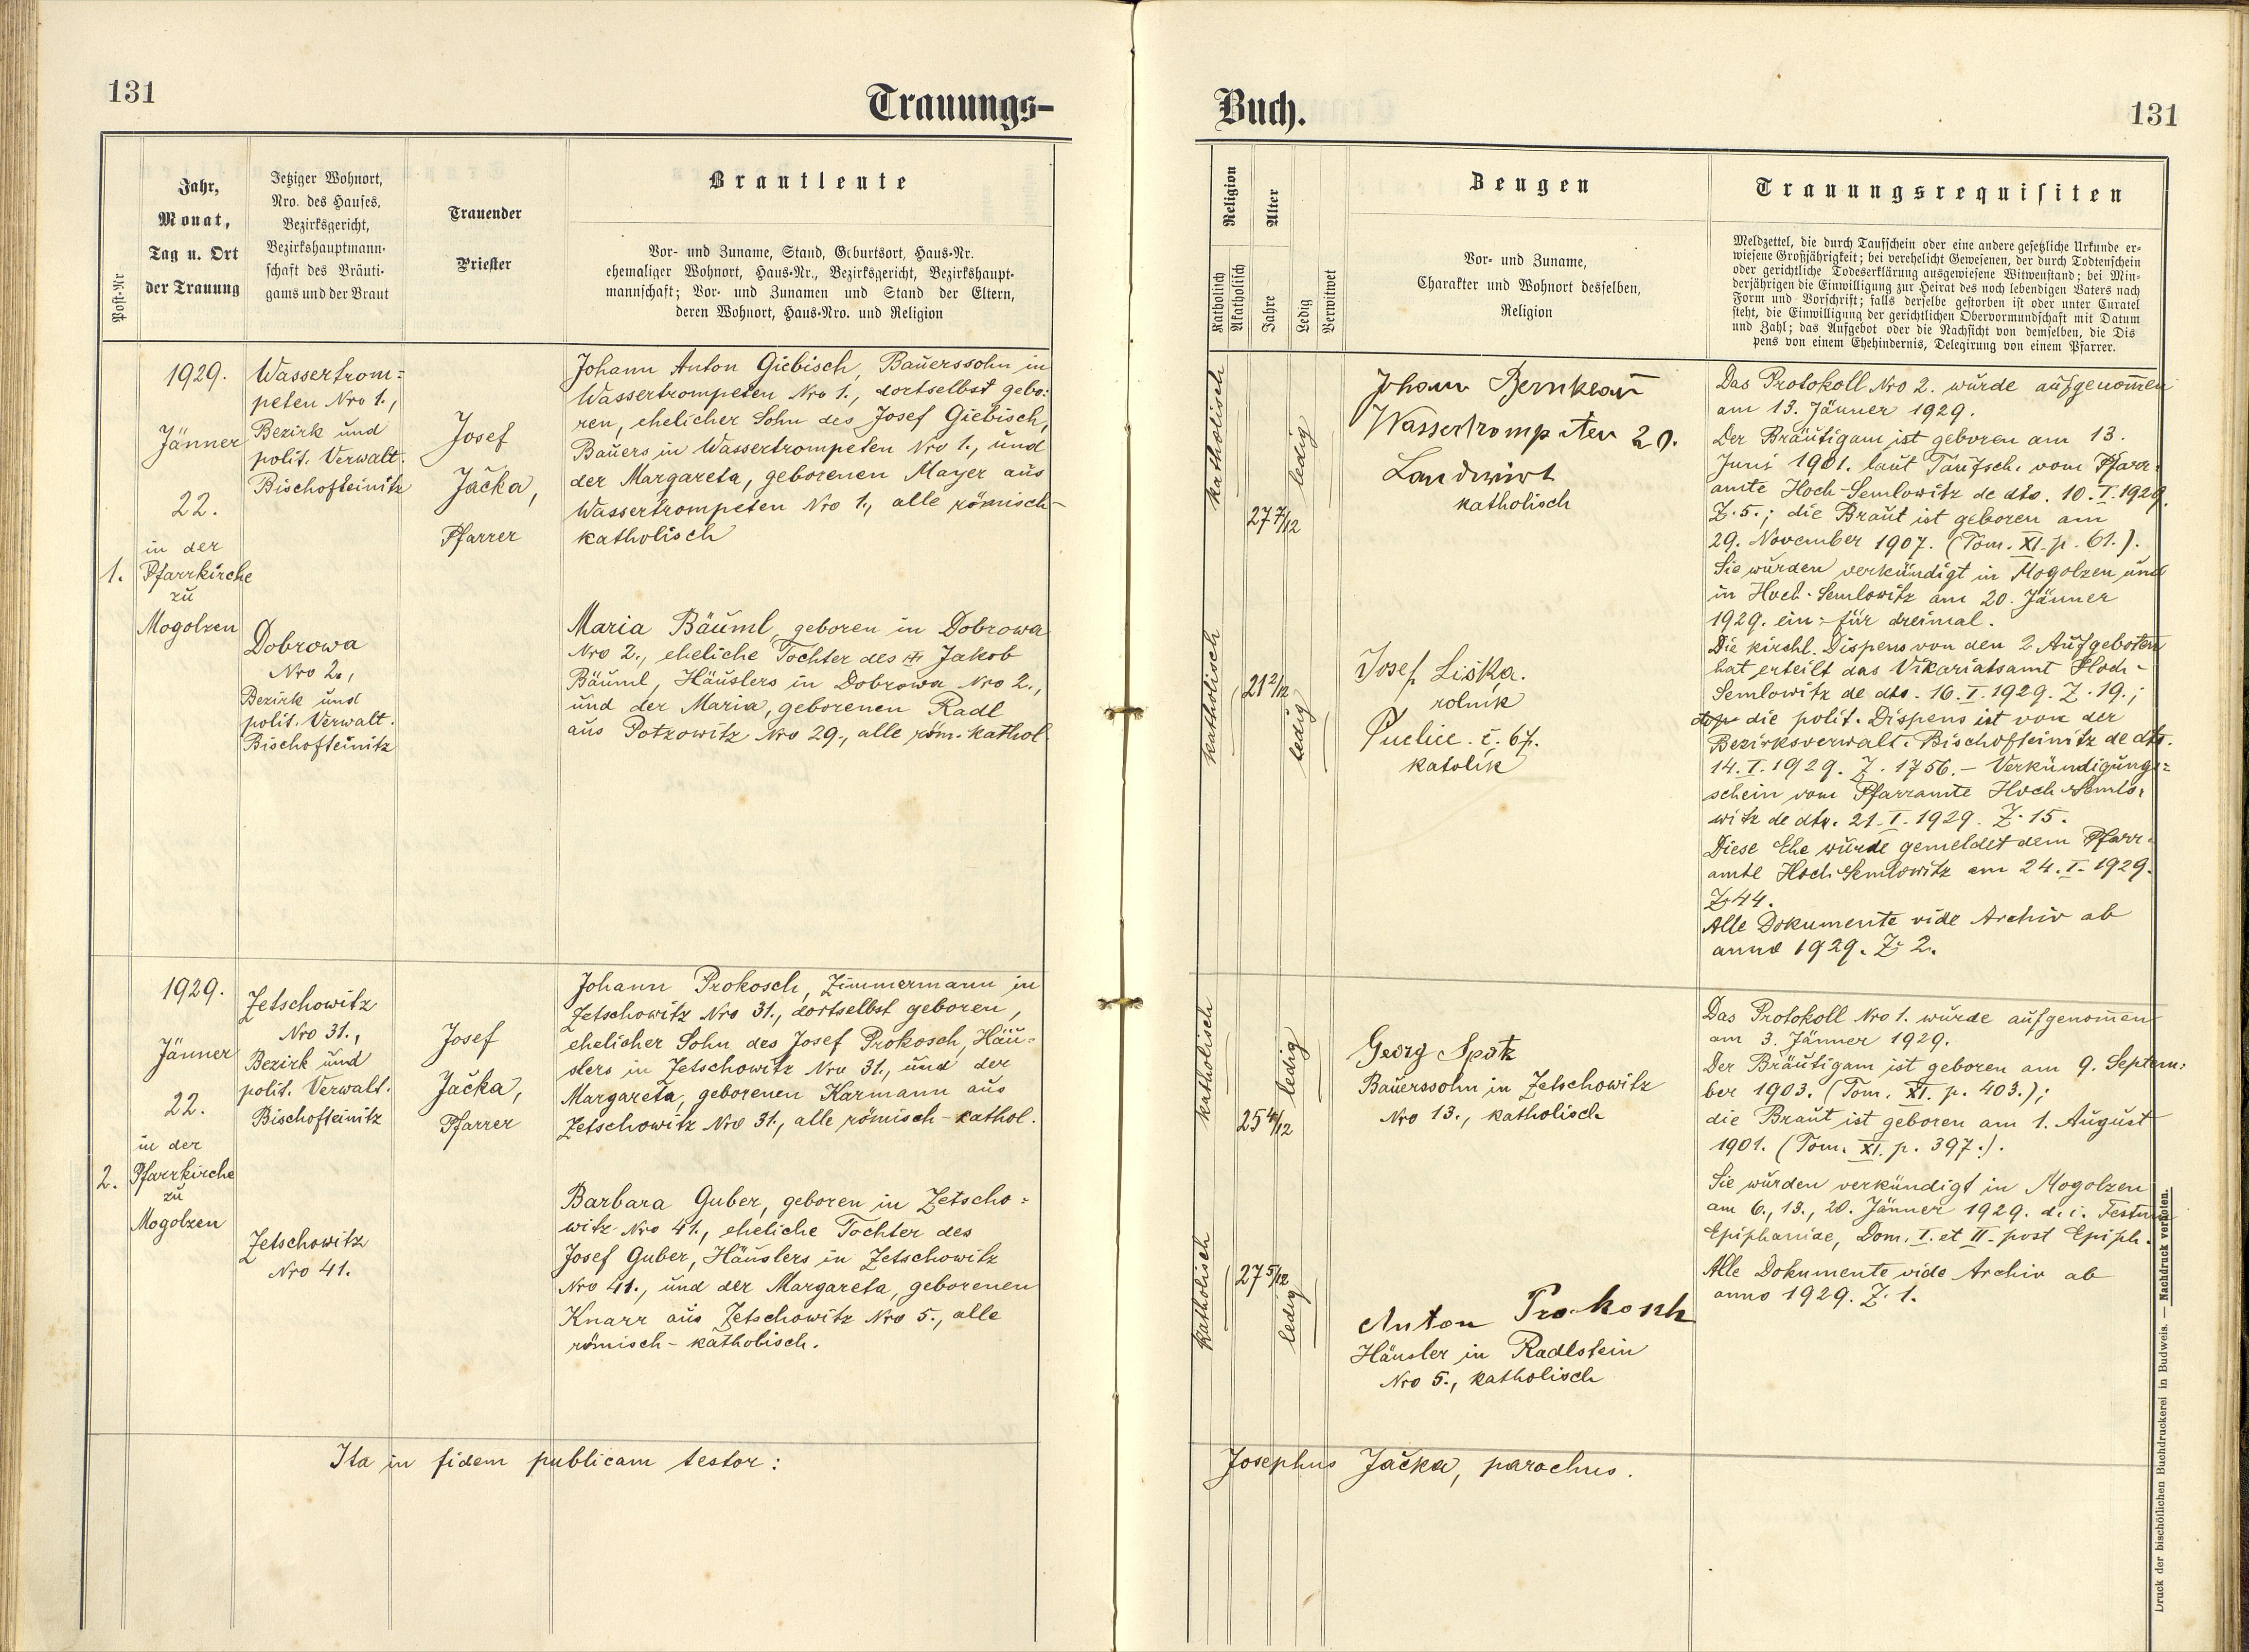 131
Trauungs-
Post-Nr
Jahr,
Monat,
Tag u. Ort
der Trauung
Jetziger Wohnort,
Nro. des Hauses,
Bezirksgericht,
Bezirkshauptmann-
schaft des Bräuti-
gams und der Braut
Trauender
Priester
Brautleute
Vor- und Zuname, Stand, Geburtsort, Haus-Nr.
ehemaliger Wohnort, Haus-Nr., Bezirksgericht, Bezirkshaupt-
mannschaft; Vor- und Zunamen und Stand der Eltern,
deren Wohnort, Haus-Nro. und Religion
1.
1929.
Jänner
22.
in der
Pfarrkirche
zu
Mogolzen
Wassertrom=
peten Nro 1.,
Bezirk und
polit. Verwalt.
Bischofteinitz
Dobrowa
Nro 2.,
Bezirk und
polit. Verwalt.
Bischofteinitz
Josef
Jačka,
Pfarrer
Johann Anton Giebisch, Bauerssohn in
Wassertrompeten Nro 1., dortselbst gebo=
ren, ehelicher Sohn des Josef Giebisch,
Bauers in Wassertrompeten Nro 1., und
der Margareta, geborenen Mayer aus
Wassertrompeten Nro 1., alle römisch-
katholisch
Maria Bäuml, geboren in Dobrowa
Nro 2., eheliche Tochter des Jakob
Bäuml, Häuslers in Dobrowa Nro 2.,
und der Maria, geborenen Radl
aus Potzowitz Nro 29., alle röm. kathol.
2.
1929.
Jänner
22.
in der
Pfarrkirche
zu
Mogolzen
Zetschowitz
Nro 31.,
Bezirk und
polit. Verwalt.
Bischofteinitz
Zetschowitz
Nro 41.
Josef
Jačka,
Pfarrer
Johann Prokosch, Zimmermann in
Zetschowitz Nro 31., dortselbst geboren,
ehelicher Sohn des Josef Prokosch, Häu=
slers in Zetschowitz Nro 31., und der
Margareta, geborenen Karmann aus
Zetschowitz Nro 31., alle römisch-kathol.
Barbara Guber, geboren in Zetscho=
witz Nro 41., eheliche Tochter des
Josef Guber, Häuslers in Zetschowitz
Nro 41., und der Margareta, geborenen
Knarr aus Zetschowitz Nro 5., alle
römisch-katholisch.
Ita in fidem publicam testor:
Buch.
131
Religion
Katholisch
Akatholisch
Alter
Jahre
Ledig
Verwitwet
Zeugen
Vor- und Zuname,
Charakter und Wohnort desselben,
Religion
Trauungsrequisiten
Meldzettel, die durch Taufschein oder eine andere gesetzliche Urkunde er-
wiesene Großjährigkeit; bei verehelicht Gewesenen, der durch Todtenschein
oder gerichtliche Todeserklärung ausgewiesene Witwenstand; bei Min-
derjährigen die Einwilligung zur Heirat des noch lebendigen Vaters nach
Form und Vorschrift; falls derselbe gestorben ist oder unter Curatel
steht, die Einwilligung der gerichtlichen Obervormundschaft mit Datum
und Zahl; das Aufgebot oder die Nachsicht von demselben, die Dis
pens von einem Ehehindernis, Delegirung von einem Pfarrer.
katholisch
27 7/12
ledig
Johann
Wassertrompeten 20.
Landwirt
katholisch
katholisch
21 2/12
ledig
Josef Liška.
rolník
Pučlice č. 67.
katolík
Das Protokoll Nro 2. wurde aufgenom̄en
am 13. Jänner 1929.
Der Bräutigam ist geboren am 13.
Juni 1901. laut Taufsch. vom Pfarr-
amte Hoch-Semlowitz de dto. 10. I. 1929.
Z. 5.; die Braut ist geboren am
29. November 1907. (Tom. XI. p. 61.).
Sie wurden verkündigt in Mogolzen und
in Hoch-Semlowitz am 20. Jänner
1929. ein- für dreimal.
Die kirchl. Dispens von den 2 Aufgeboten
hat erteilt das Vikariatsamt Hoch-
Semlowitz de dto. 16. I. 1929. Z. 19.;
die polit. Dispens ist von der
Bezirksverwalt. Bischofteinitz de dto.
14. I. 1929. Z. 1756. - Verkündigungs=
schein vom Pfarramte Hoch-Semlo=
witz de dto. 21. I. 1929. Z. 15.
Diese Ehe wurde gemeldet dem Pfarr-
amte Hoch-Semlowitz am 24. I. 1929.
Z. 44.
Alle Dokumente vide Archiv ab
anno 1929. Z. 2.
katholisch
25 4/12
ledig
Georg Spatz
Bauerssohn in Zetschowitz
Nro 13., katholisch
katholisch
27 5/12
ledig
Anton Prokosch
Häusler in Radlstein
Nro 5., katholisch
Das Protokoll Nro 1. wurde aufgenom̄en
am 3. Jänner 1929.
Der Bräutigam ist geboren am 9. Septem=
ber 1903. (Tom. XI. p. 403.);
die Braut ist geboren am 1. August
1901. (Tom. XI. p. 397.).
Sie wurden verkündigt in Mogolzen
am 6., 13., 20. Jänner 1929. d. i. Festum
Epiphaniae, Dom. I. et II. post Epiph.
Alle Dokumente vide Archiv ab
anno 1929. Z. 1.
Josephus Jačka, parochus.
Druck der bischöflichen Buchdruckerei in Budweis. — Nachdruck verboten.